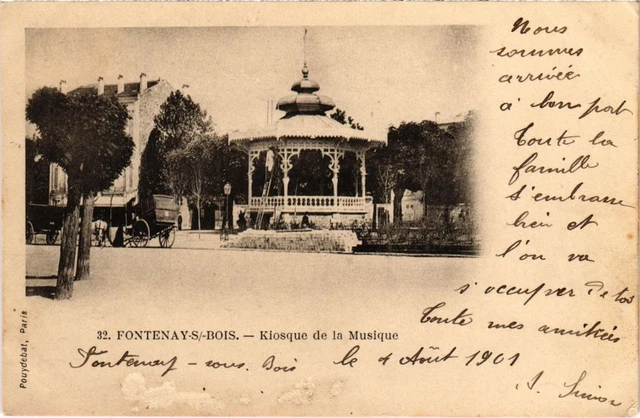 Nous
sommes
arrivée
à bon port
Toute la
famille
s'embrasse
bien et
l'on va
s'occuper de toi
Toute mes amitiées
32. FONTENAY-S/-BOIS. — Kiosque de la Musique
Fontenay - sous - Bois le 4 Août 1901
Pouydebat, Paris